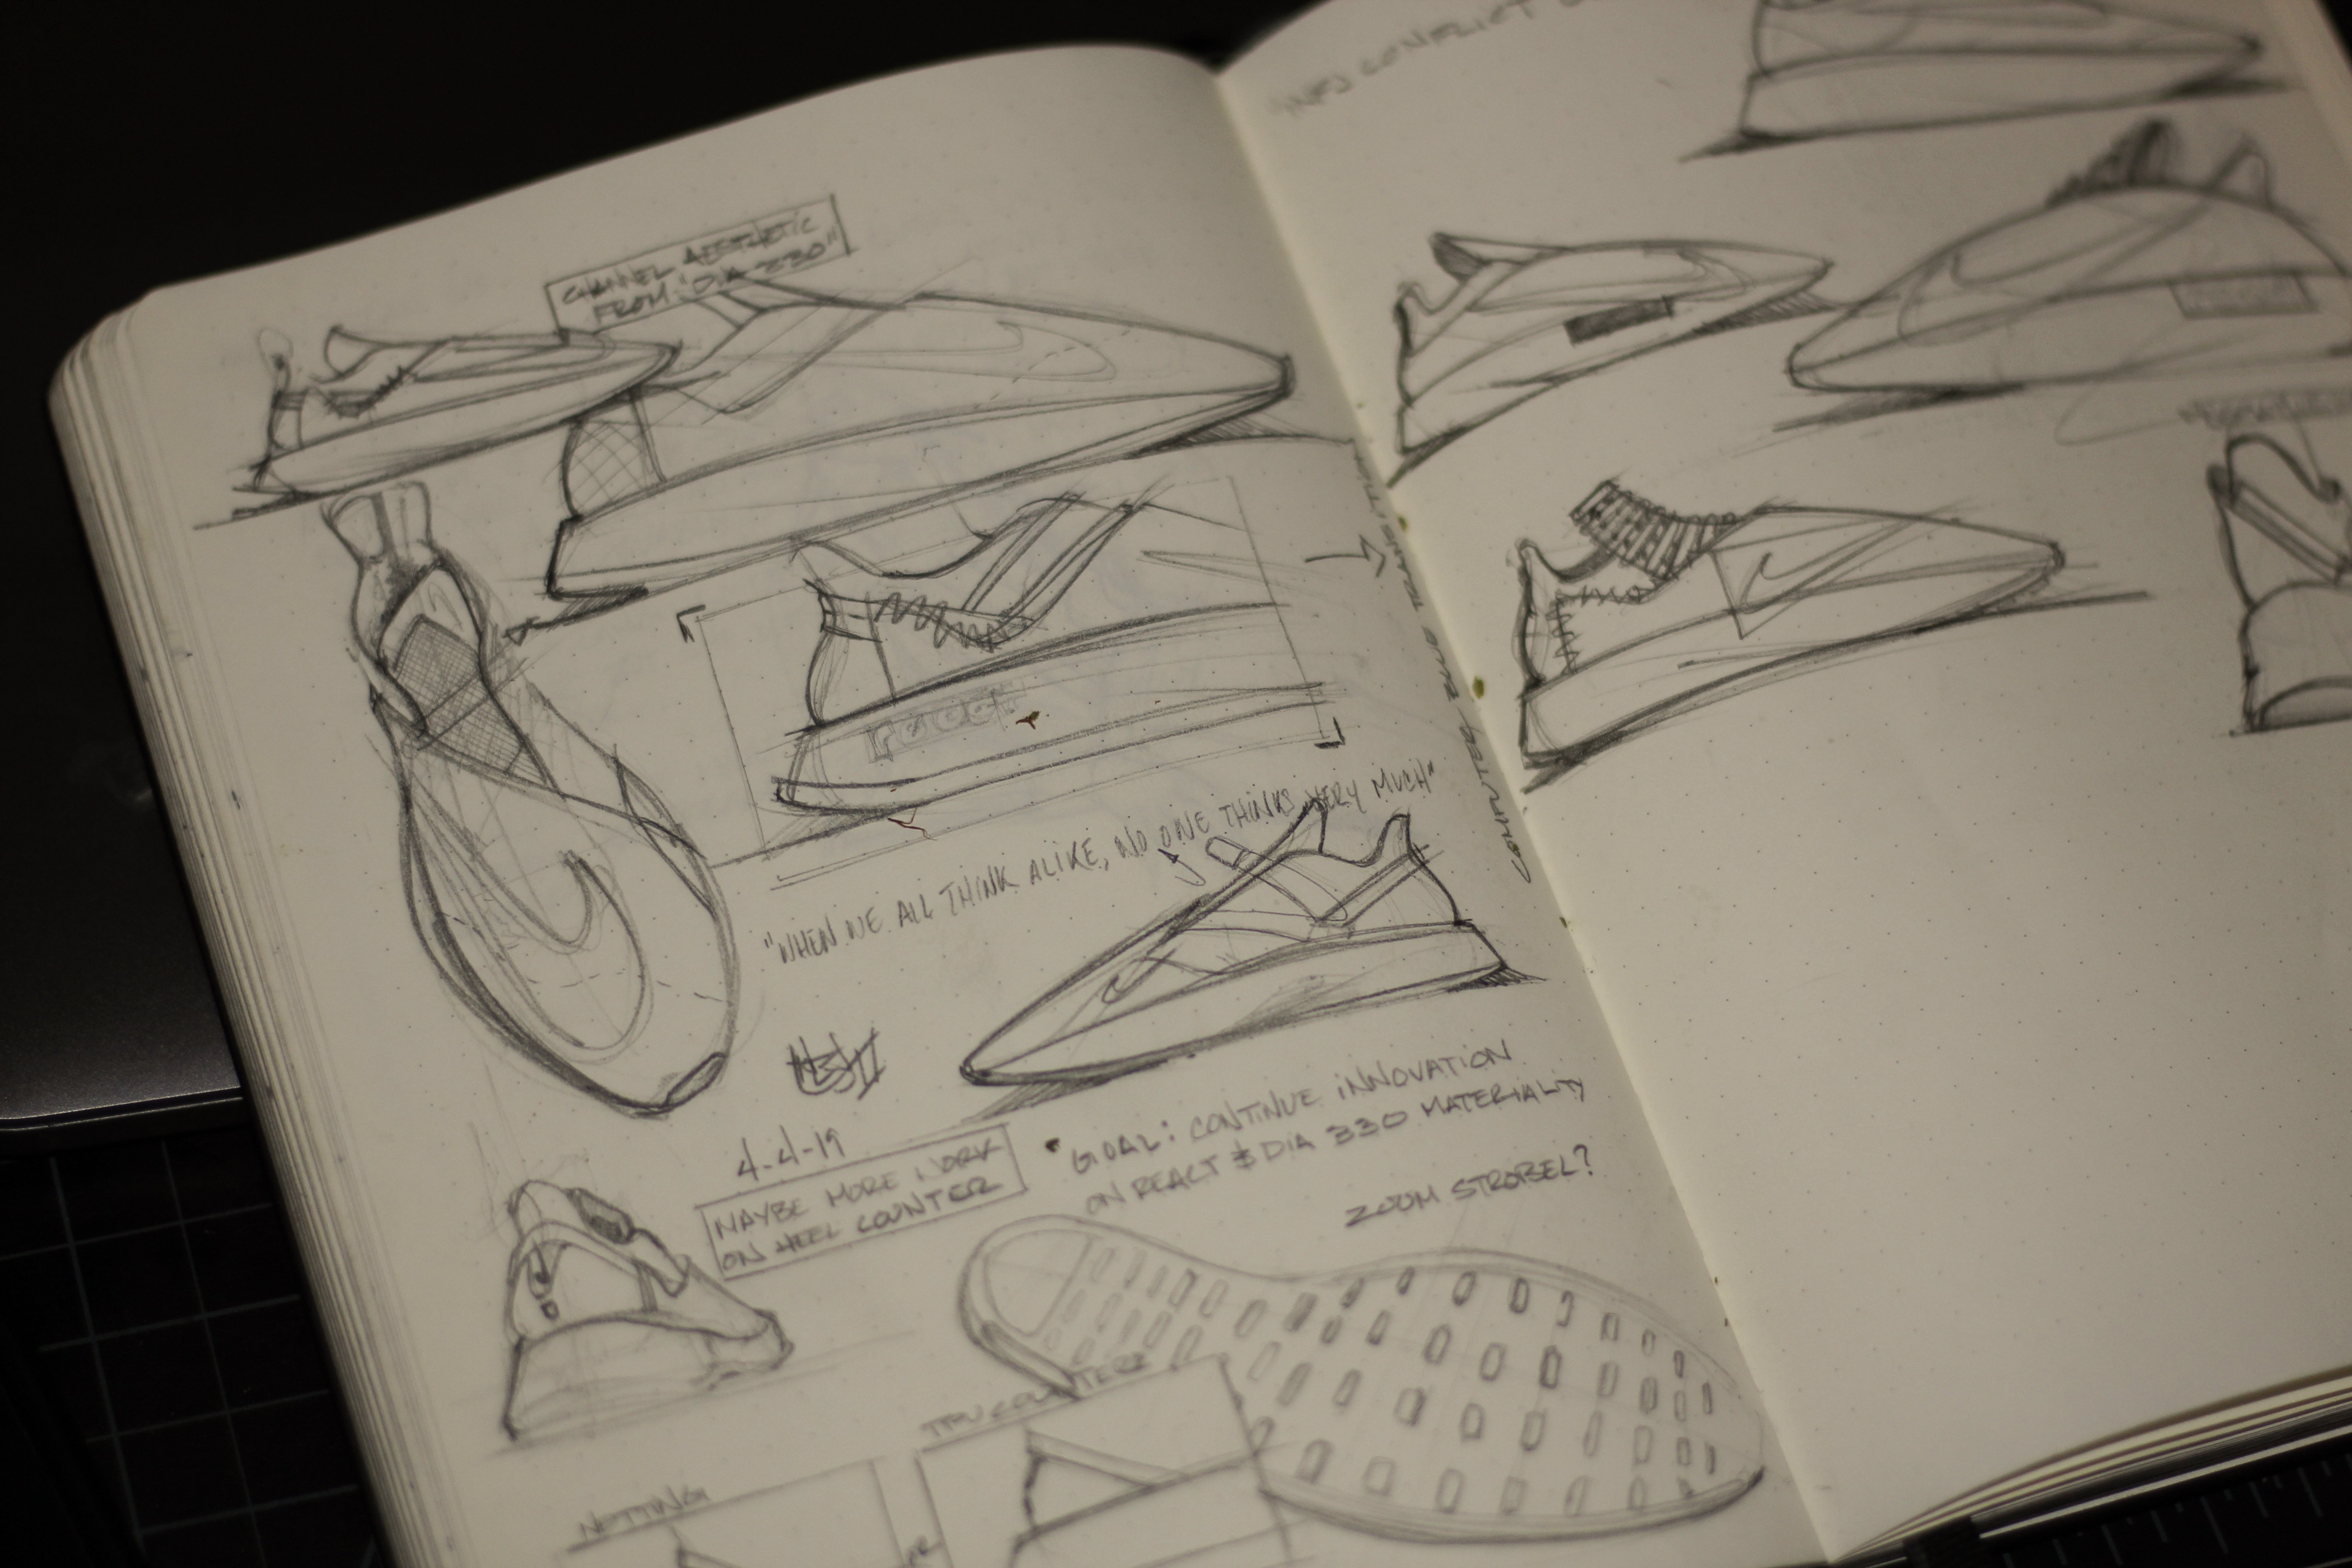 CHANNEL AESTHETIC
FROM "DIA 330"
"WHEN WE ALL THINK ALIKE, NO ONE THINKS VERY MUCH"
4-4-19
MAYBE MORE WORK
ON HEEL COUNTER
"GOAL: CONTINUE INNOVATION
ON REACT & DIA 330 MATERIALITY
ZOOM STROBEL?
TPU COUNTER?
NETTING
OR
CONFLICT
COUNTER